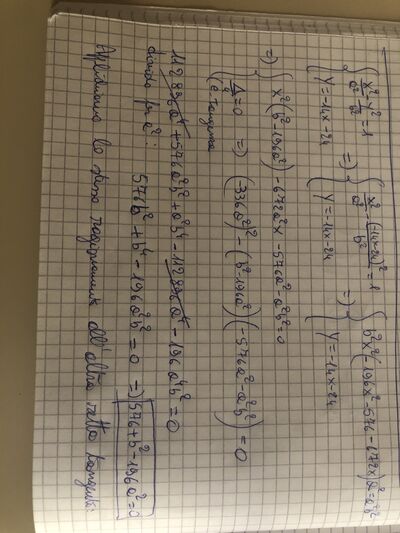 {x²/a² - y²/b² = 1 => {x²/a² - (-14x-24)²/b² = 1 => {b²x² (-196x² - 576 - 672x)a² = a²b²
{y = -14x - 24 {y = -14x - 24 {y = -14x - 24
=> {x²(b² - 196a²) - 672a²x - 576a² - a²b² = 0
{Δ/4 = 0 => (336a²)² - (b² - 196a²)(-576a² - a²b²) = 0
(è tangente
112896a⁴ + 576a²b² + a²b⁴ - 112896a⁴ - 196a⁴b² = 0
divido per a²: 576b² + b⁴ - 196a²b² = 0 => 576 + b² - 196a² = 0
Applichiamo lo stesso ragionamento all'altra retta tangente: